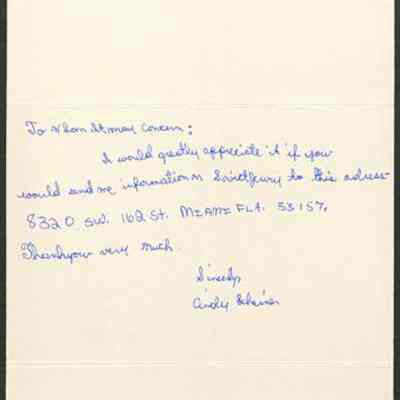 To Whom It may Concern:
I would greatly appreciate it if you
would send me information on Soviet Jewry to this adress
8320 SW. 162 St. MIAMI FLA. 33157.
Thankyou very much.
Sincerly
Cindy